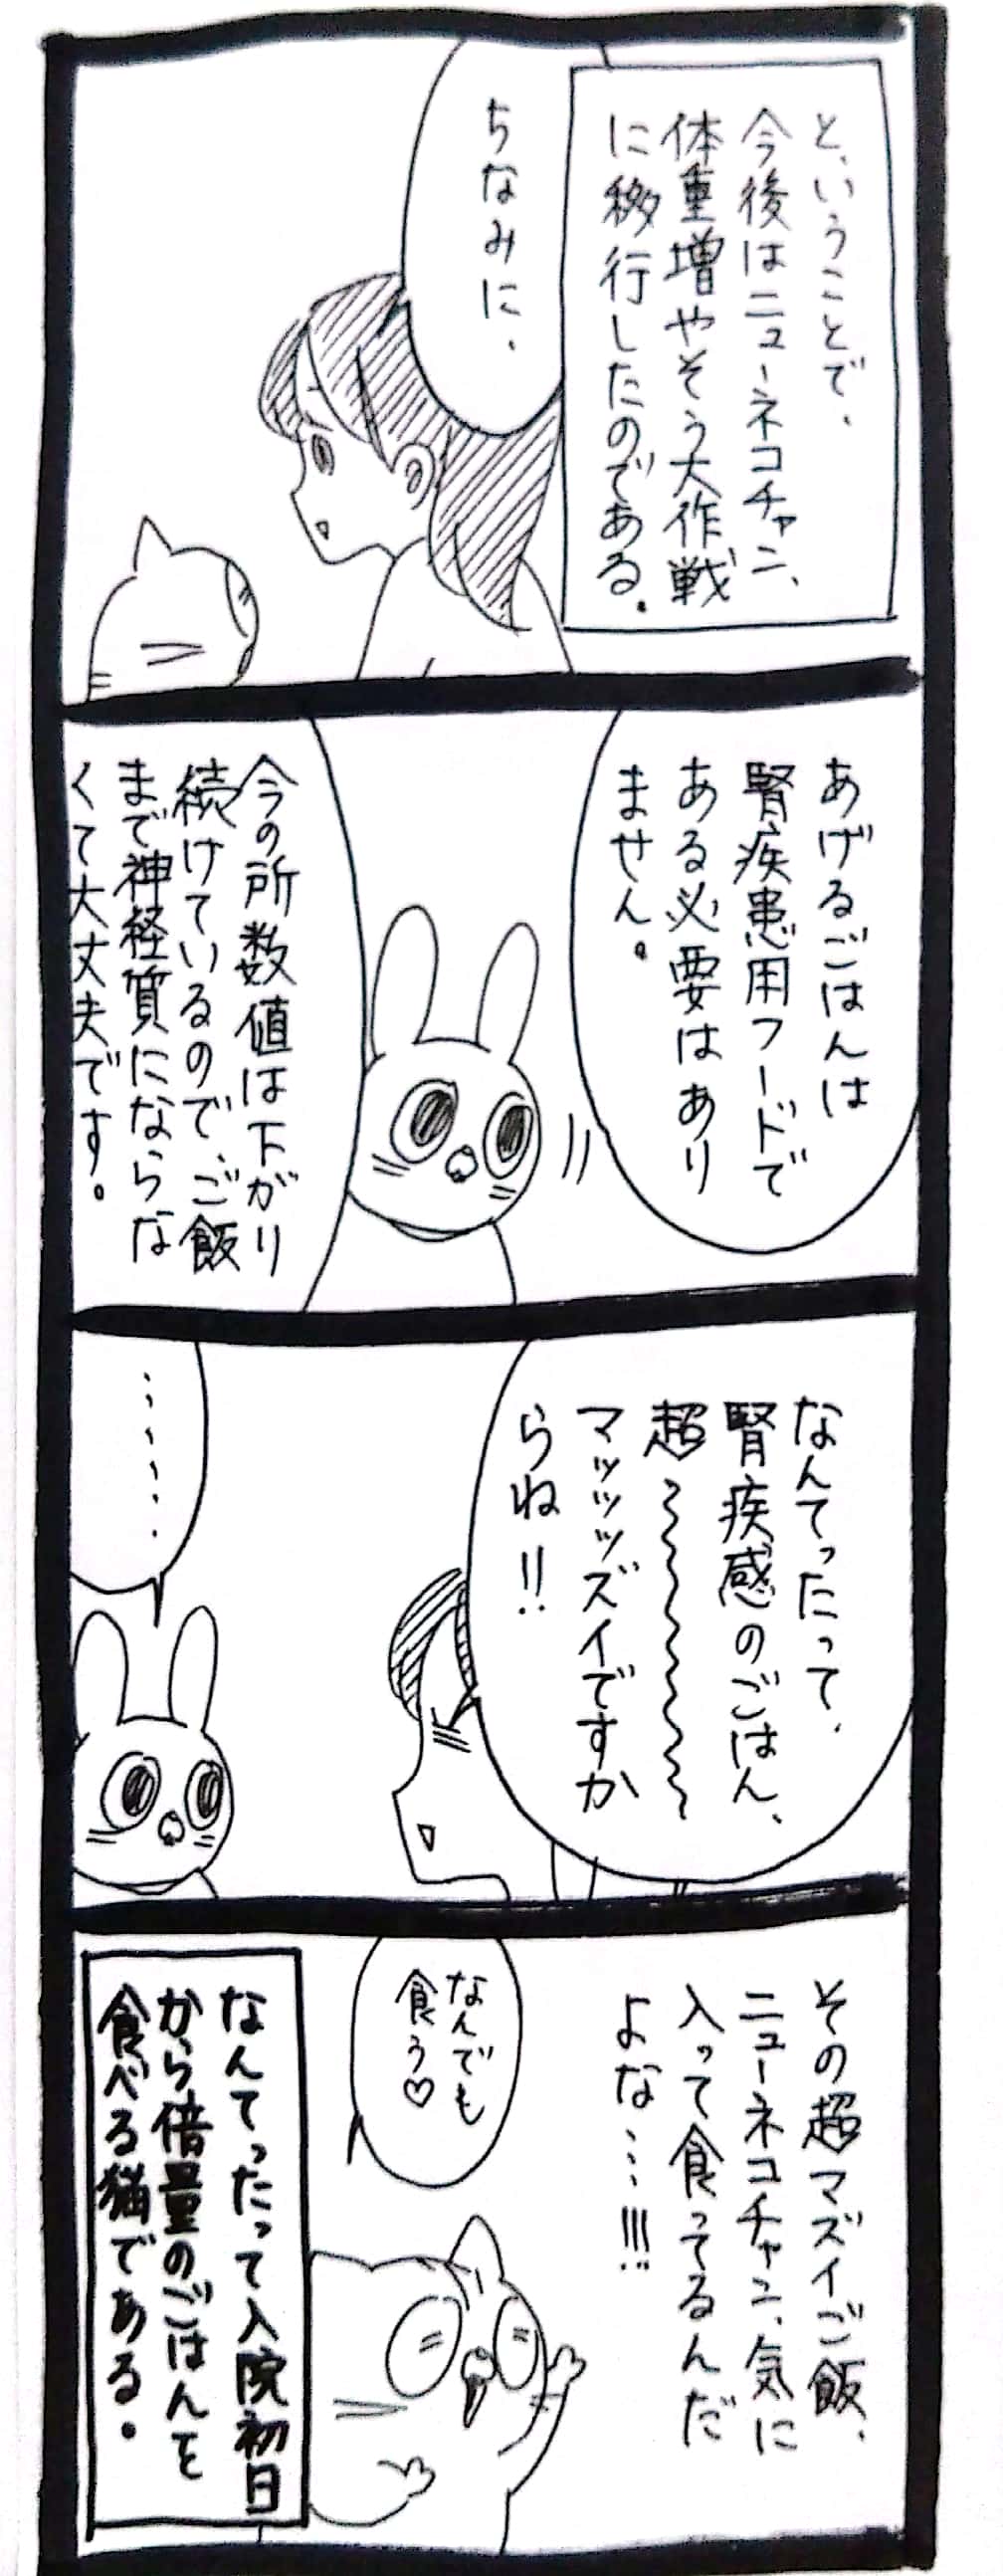 と、いうことで、
今後はニューネコチャン、
体重増やそう大作戦
に移行したのである。
ちなみに、
あげるごはんは
腎疾患用フードで
ある必要はあり
ません。
今の所数値は下がり
続けているので、ご飯
まで神経質にならな
くて大丈夫です。
なんてったって、
腎疾感のごはん、
超〜〜〜〜〜〜
マッッッズイですか
らね!!
・・・・・
その超マズイご飯、
ニューネコチャン、気に
入って食ってるんだ
よな…!!!
なんでも
食う♡
なんてったって入院初日
から倍量のごはんを
食べる猫である。